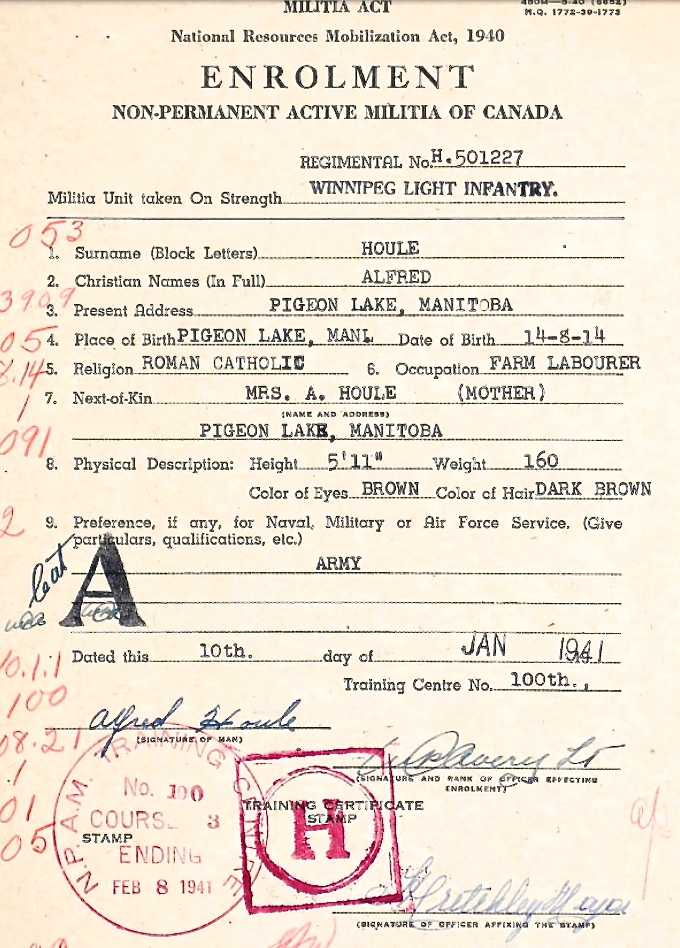 MILITIA ACT
H.Q. 1772-39-1773
National Resources Mobilization Act, 1940
ENROLMENT
NON-PERMANENT ACTIVE MILITIA OF CANADA
REGIMENTAL No. H.501227
Militia Unit taken On Strength WINNIPEG LIGHT INFANTRY.
053
1. Surname (Block Letters) HOULE
2. Christian Names (In Full) ALFRED
3909
3. Present Address PIGEON LAKE, MANITOBA
05
4. Place of Birth PIGEON LAKE, MANI. Date of Birth 14-8-14
8.14
5. Religion ROMAN CATHOLIC 6. Occupation FARM LABOURER
1
7. Next-of-Kin MRS. A. HOULE (MOTHER)
(NAME AND ADDRESS)
091
PIGEON LAKE, MANITOBA
8. Physical Description: Height 5'11" Weight 160
Color of Eyes BROWN Color of Hair DARK BROWN
2
9. Preference, if any, for Naval, Military or Air Force Service. (Give
particulars, qualifications, etc.)
ARMY
A
Dated this 10th. day of JAN 1941
10.1.1
Training Centre No. 100th.
100
Alfred Houle
(SIGNATURE OF MAN)
08.21
(SIGNATURE AND RANK OF OFFICER EFFECTING
ENROLMENT)
1
N.P.A.M. TRAINING CENTRE
No. 100
COURSE 3
ENDING
FEB 8 1941
STAMP
TRAINING CERTIFICATE
STAMP
H
01
05
(SIGNATURE OF OFFICER AFFIXING THE STAMP)